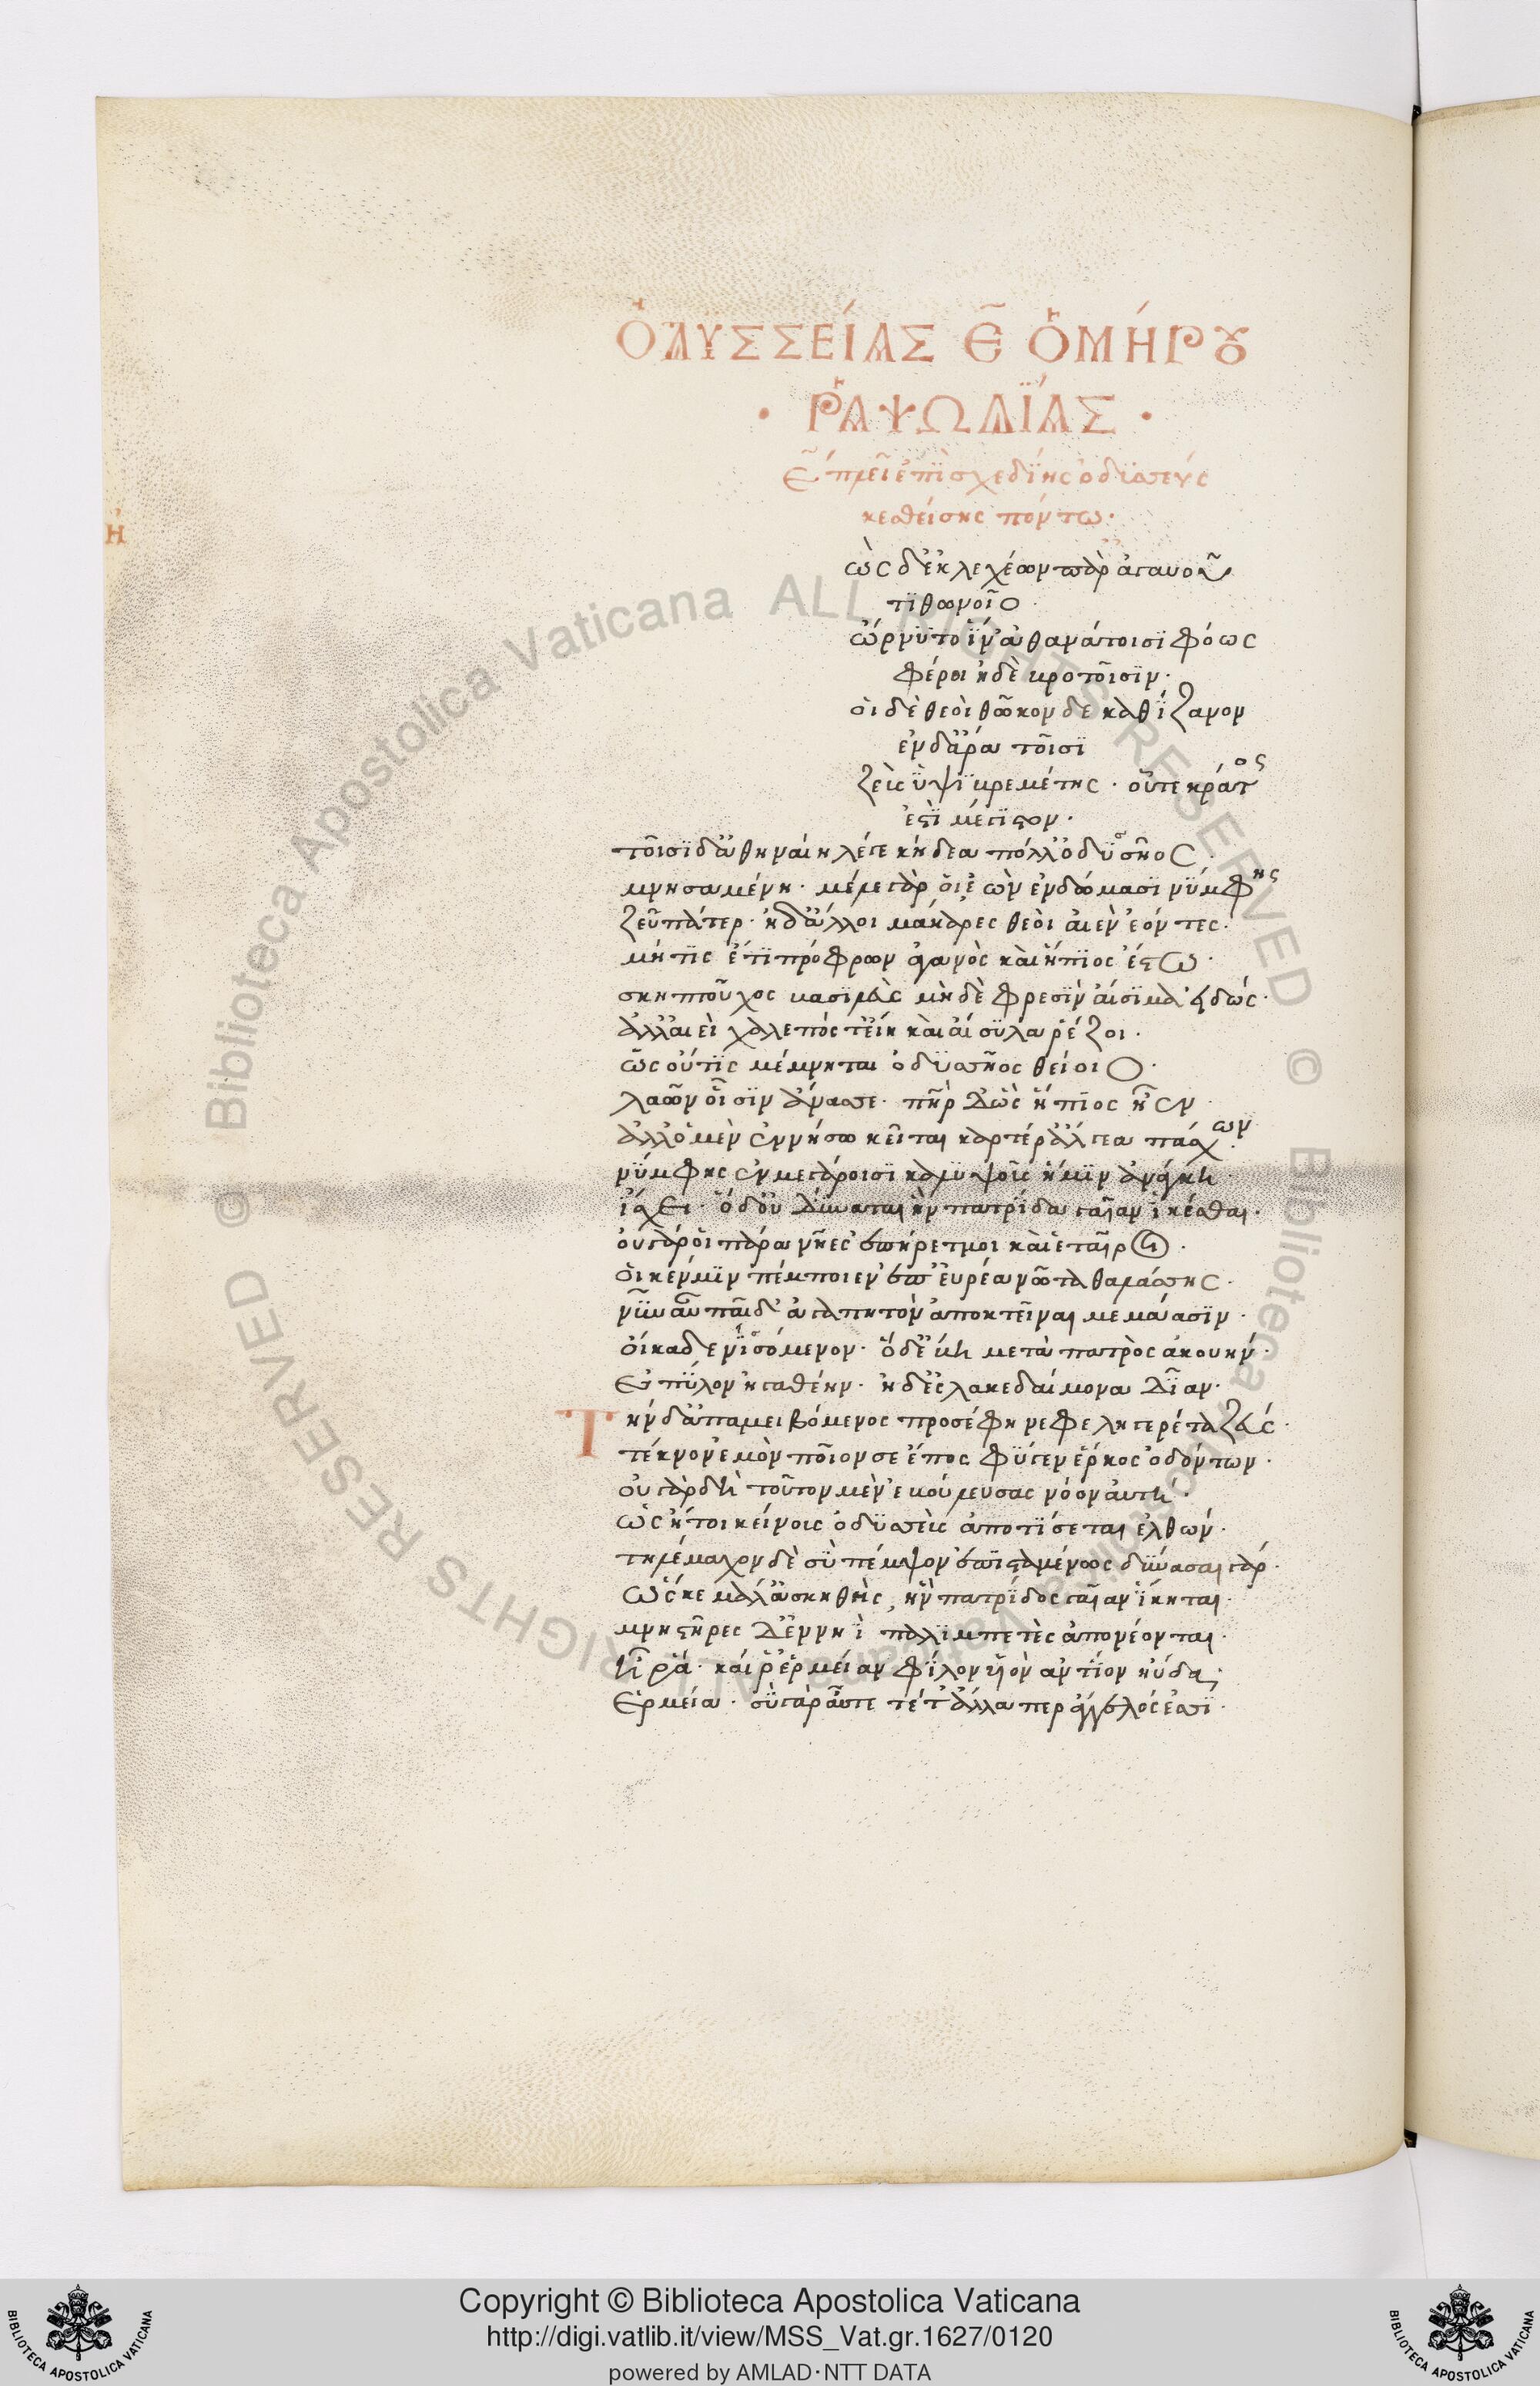 ὈΔΥΣΣΕΊΑΣ Ε̃ ὉΜΉΡΟΥ
· ῬΑΨΩΔΪΆΣ ·
κεασθείσης πόντω·
Ἠ
ὼς δ' ἐκ λεχέων παρ ἀγαυοῦ
τϊθωνοῖο
ὤρνϋτο ἵν' ἀθανάτοισϊ φόως
φέροι ἠδὲ βροτοῖσϊν·
ὁι δὲ θεοὶ θῶκον δὲ καθΐζανον
ἐν δ' ἄρα τοῖσϊ
ζεὺς ὑψϊβρεμέτης · οὗτε κράτος
ἐστϊ μέγϊστον·
τοῖσϊ δ' ἀθηναίη λέγε κήδεα πόλλ' ὀδϋσῆος·
μνησαμένη · μέλε γάρ ὁι ἐὼν ἐν δώμασϊ νϋμφης
ζεῦ πάτερ · ἠδ' ἄλλοι μάκαρες θεὸι ἀιὲν ἐόντες·
μή τϊς ἔτϊ πρόφρων ἀγανὸς καὶ ἤπϊος ἔστω·
σκηπτοῦχος βασϊλεὺς μὴ δὲ φρεσϊν ἀίσϊμα ἐιδώς·
ἀλλ' ἀιεὶ χαλεπός τ' ἔιη καὶ ἀίσϋλα ῥέζοι·
ὣς ὀύτϊς μέμνηται ὀδϋσσῆος θείοιο·
λαῶν ὁῖσϊν ἄνασσε· πατὴρ δ' ὣς ἤπϊος ἦεν·
ἀλλ' ὁ μὲν ἐν νήσω κεῖται κρατέρ' ἄλγεα πάσχων·
νϋμφης ἐν μεγάροισϊ καλϋψοῦς ἥ μϊν ἀνάγκη
ἴσχει · ὁ δ' ὀυ δύναται ἣν πατρΐδα γαῖαν ἱκέσθαι·
ὀυ γάρ ὁι πάρα νῆες ἐπήρετμοι καὶ ἑταῖροι·
ὁί κέν μϊν πέμποιεν ἐπ' ἐυρέα νῶτα θαλάσσης·
νῦν ἀῦ παῖδ' ἀγαπητὸν ἀποκτεῖναι μεμάασϊν·
ὀίκαδε νϊσόμενον· ὁ δ' ἔβη μετὰ πατρὸς ἀκουήν·
ἐς πϋλον ἠγαθέην· ἠδ' ἐς λακεδαίμονα δῖαν·
Τὴν δ' ἀπαμειβόμενος προσέφη νεφεληγερέτα ζεύς·
τέκνον ἐμὸν ποῖον σε ἔπος φϋγεν ἕρκος ὀδόντων·
ὀυ γὰρ δὴ τοῦτον μὲν ἐβούλευσας νόον ἀυτή·
ὡς ἤτοι κείνοις ὀδϋσσεὺς ἀποτϊσεται ἐλθών·
τηλέμαχον δὲ σϋ πέμψον ἐπϊσταμένως δύνασαι γάρ·
ὥς κε μάλ' ἀσκηθὴς, ἣν πατρΐδος γαῖαν ἵκηται·
μνηστῆρες δ' ἐν νηῒ παλϊμπετὲς ἀπονέονται·
ἦ ῥά· καί ῥ' ἑρμείαν φΐλον υἱὸν ἀντΐον ηὔδα·
Ἑρμεία · σϋ γὰρ ἆυτε τέ τ' ἄλλα περ ἄγγελός ἐσσϊ·
Copyright © Biblioteca Apostolica Vaticana
http://digi.vatlib.it/view/MSS_Vat.gr.1627/0120
powered by AMLAD·NTT DATA
BIBLIOTECA APOSTOLICA VATICANA
BIBLIOTECA APOSTOLICA VATICANA
© Biblioteca Apostolica Vaticana ALL RIGHTS RESERVED © Biblioteca Apostolica Vaticana ALL RIGHTS RESERVED